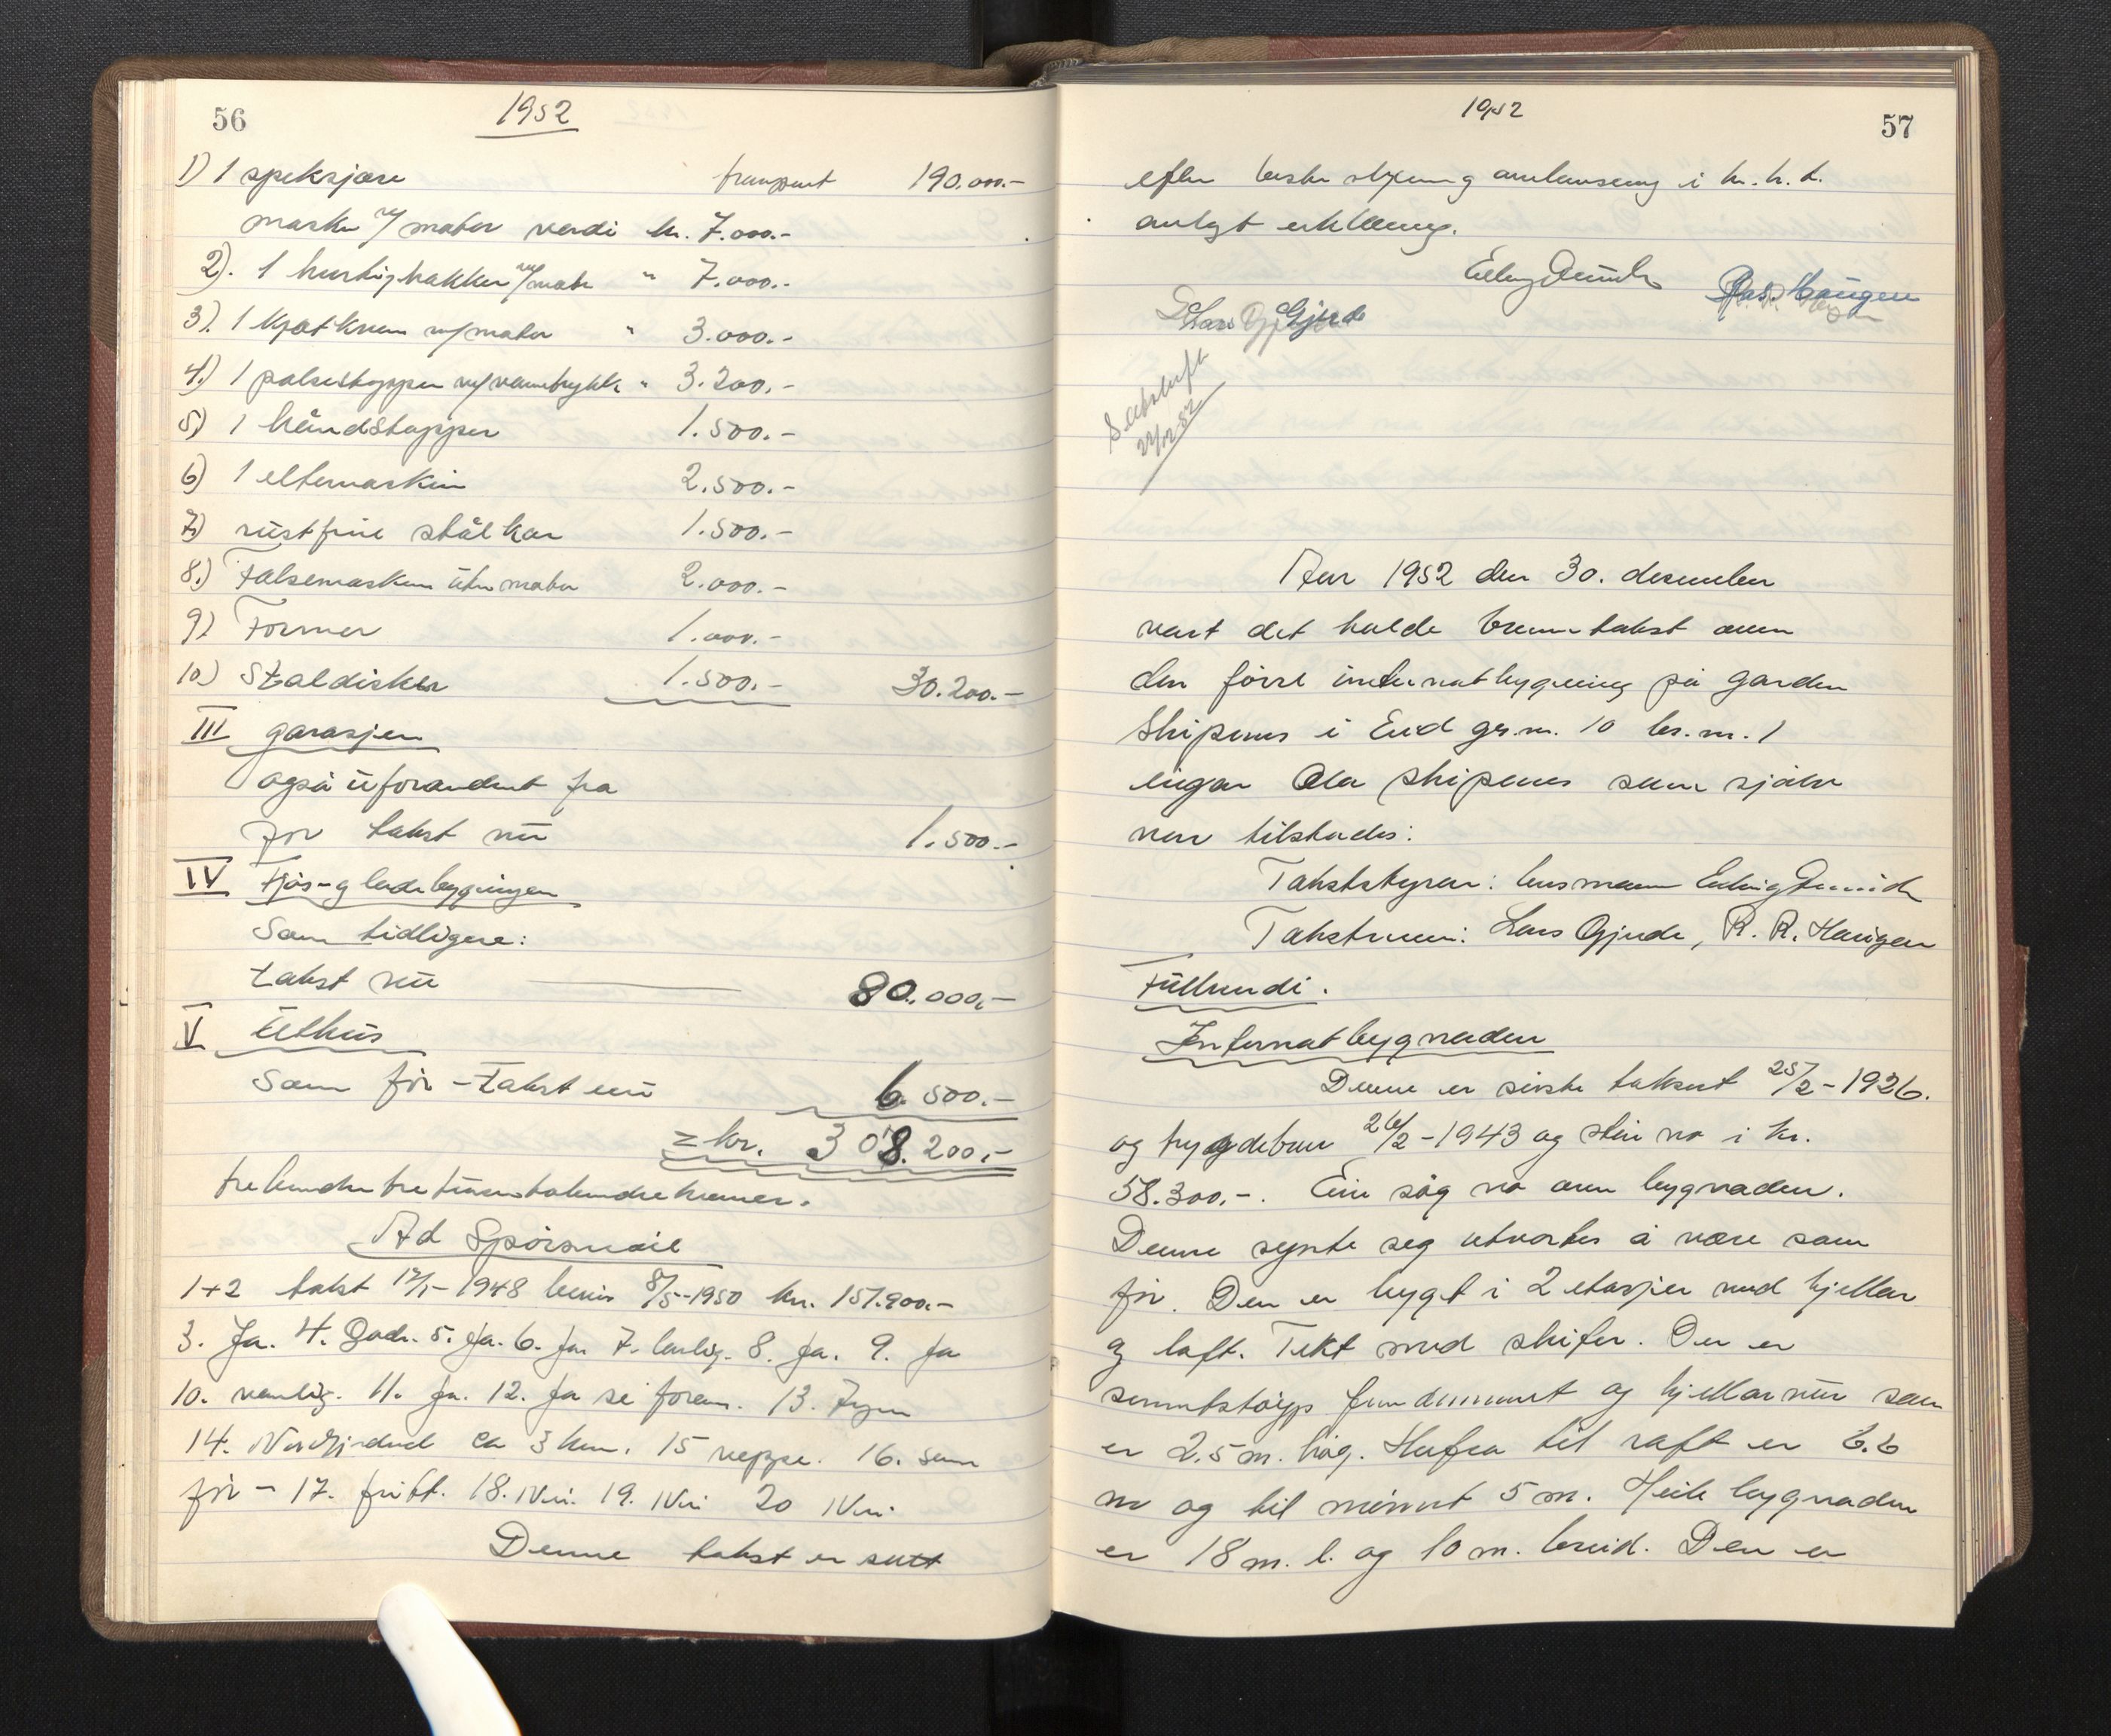 56
1952
1) 1 spekskjære transport 190.000.-
maskin m/ motor verdi kr. 7.000.-
2). 1 hurtighakker m/motor " 7.000.-
3). 1 kjøtkvern m/motor " 3.000.-
4.) 1 pølsestopper m/vanntrykk " 3.200.-
5) 1 håndstopper 1.500.-
6) 1 eltemaskin 2.500.-
7) rustfrie stålkar 1.500.-
8.) Falsemaskin uten motor 2.000.-
9) Former 1.000.-
10) Staldisker 1.500.- 30.200.-
III garasjen
også uforandret fra
før takst nu 1.500.-
IV Fjøs- og ladebygningen
Som tidligere:
takst nu 80.000,-
V Uthus
Som før - takst nu 6.500.-
= kr. 308.200.-
trehundre tusen tohundre kroner.
Ad Spørsmåil
1+2 takst 12/1- 1948 bevis 8/5-1950 kr. 151.900.-
3. Ja. 4. Godr. 5. Ja. 6. Ja 7. lovlig. 8. Ja. 9. Ja
10. vanlig. 11. Ja. 12. Ja se foran. 13. Ingen
14. Nordfjordeid ca 3 km. 15 neppe. 16. som
før - 17. fritt. 18. Nei. 19. Nei 20 Nei.
Denne takst er sett
1952
57
efter beste skjønn og anlausning i h. h. t.
avlagt erklæring.
Ras. Haugen
Lars Gjerde
År 1952 den 30. desember
vart det halde branntakst over
den förre internatbygning på garden
Skipenes i Eid gr.nr. 10 br.nr. 1
eigar Ola Skipenes som sjølv
var tilstades:
Takststyrar: lensmann Erling
Takstmenn: Lars Gjerde, R. R. Haugen
Fullverdi.
Internatbygnaden
Denne er siste taksert 25/2-1926.
og trygdebrev 26/2-1943 og står no i kr.
58.300,-. Ein såg no over bygnaden.
Denne synte seg utvortes å være som
før. Den er bygt i 2 etasjer med kjellar
og loft. Tekt med skifer. Der er
sementstøyp fundament og kjellarmur som
er 2.5 m. høg. Herfra til raft er 6.6
m og til mønet 5 m. Heile bygnaden
er 18 m. l. og 10 m. breid. Den er